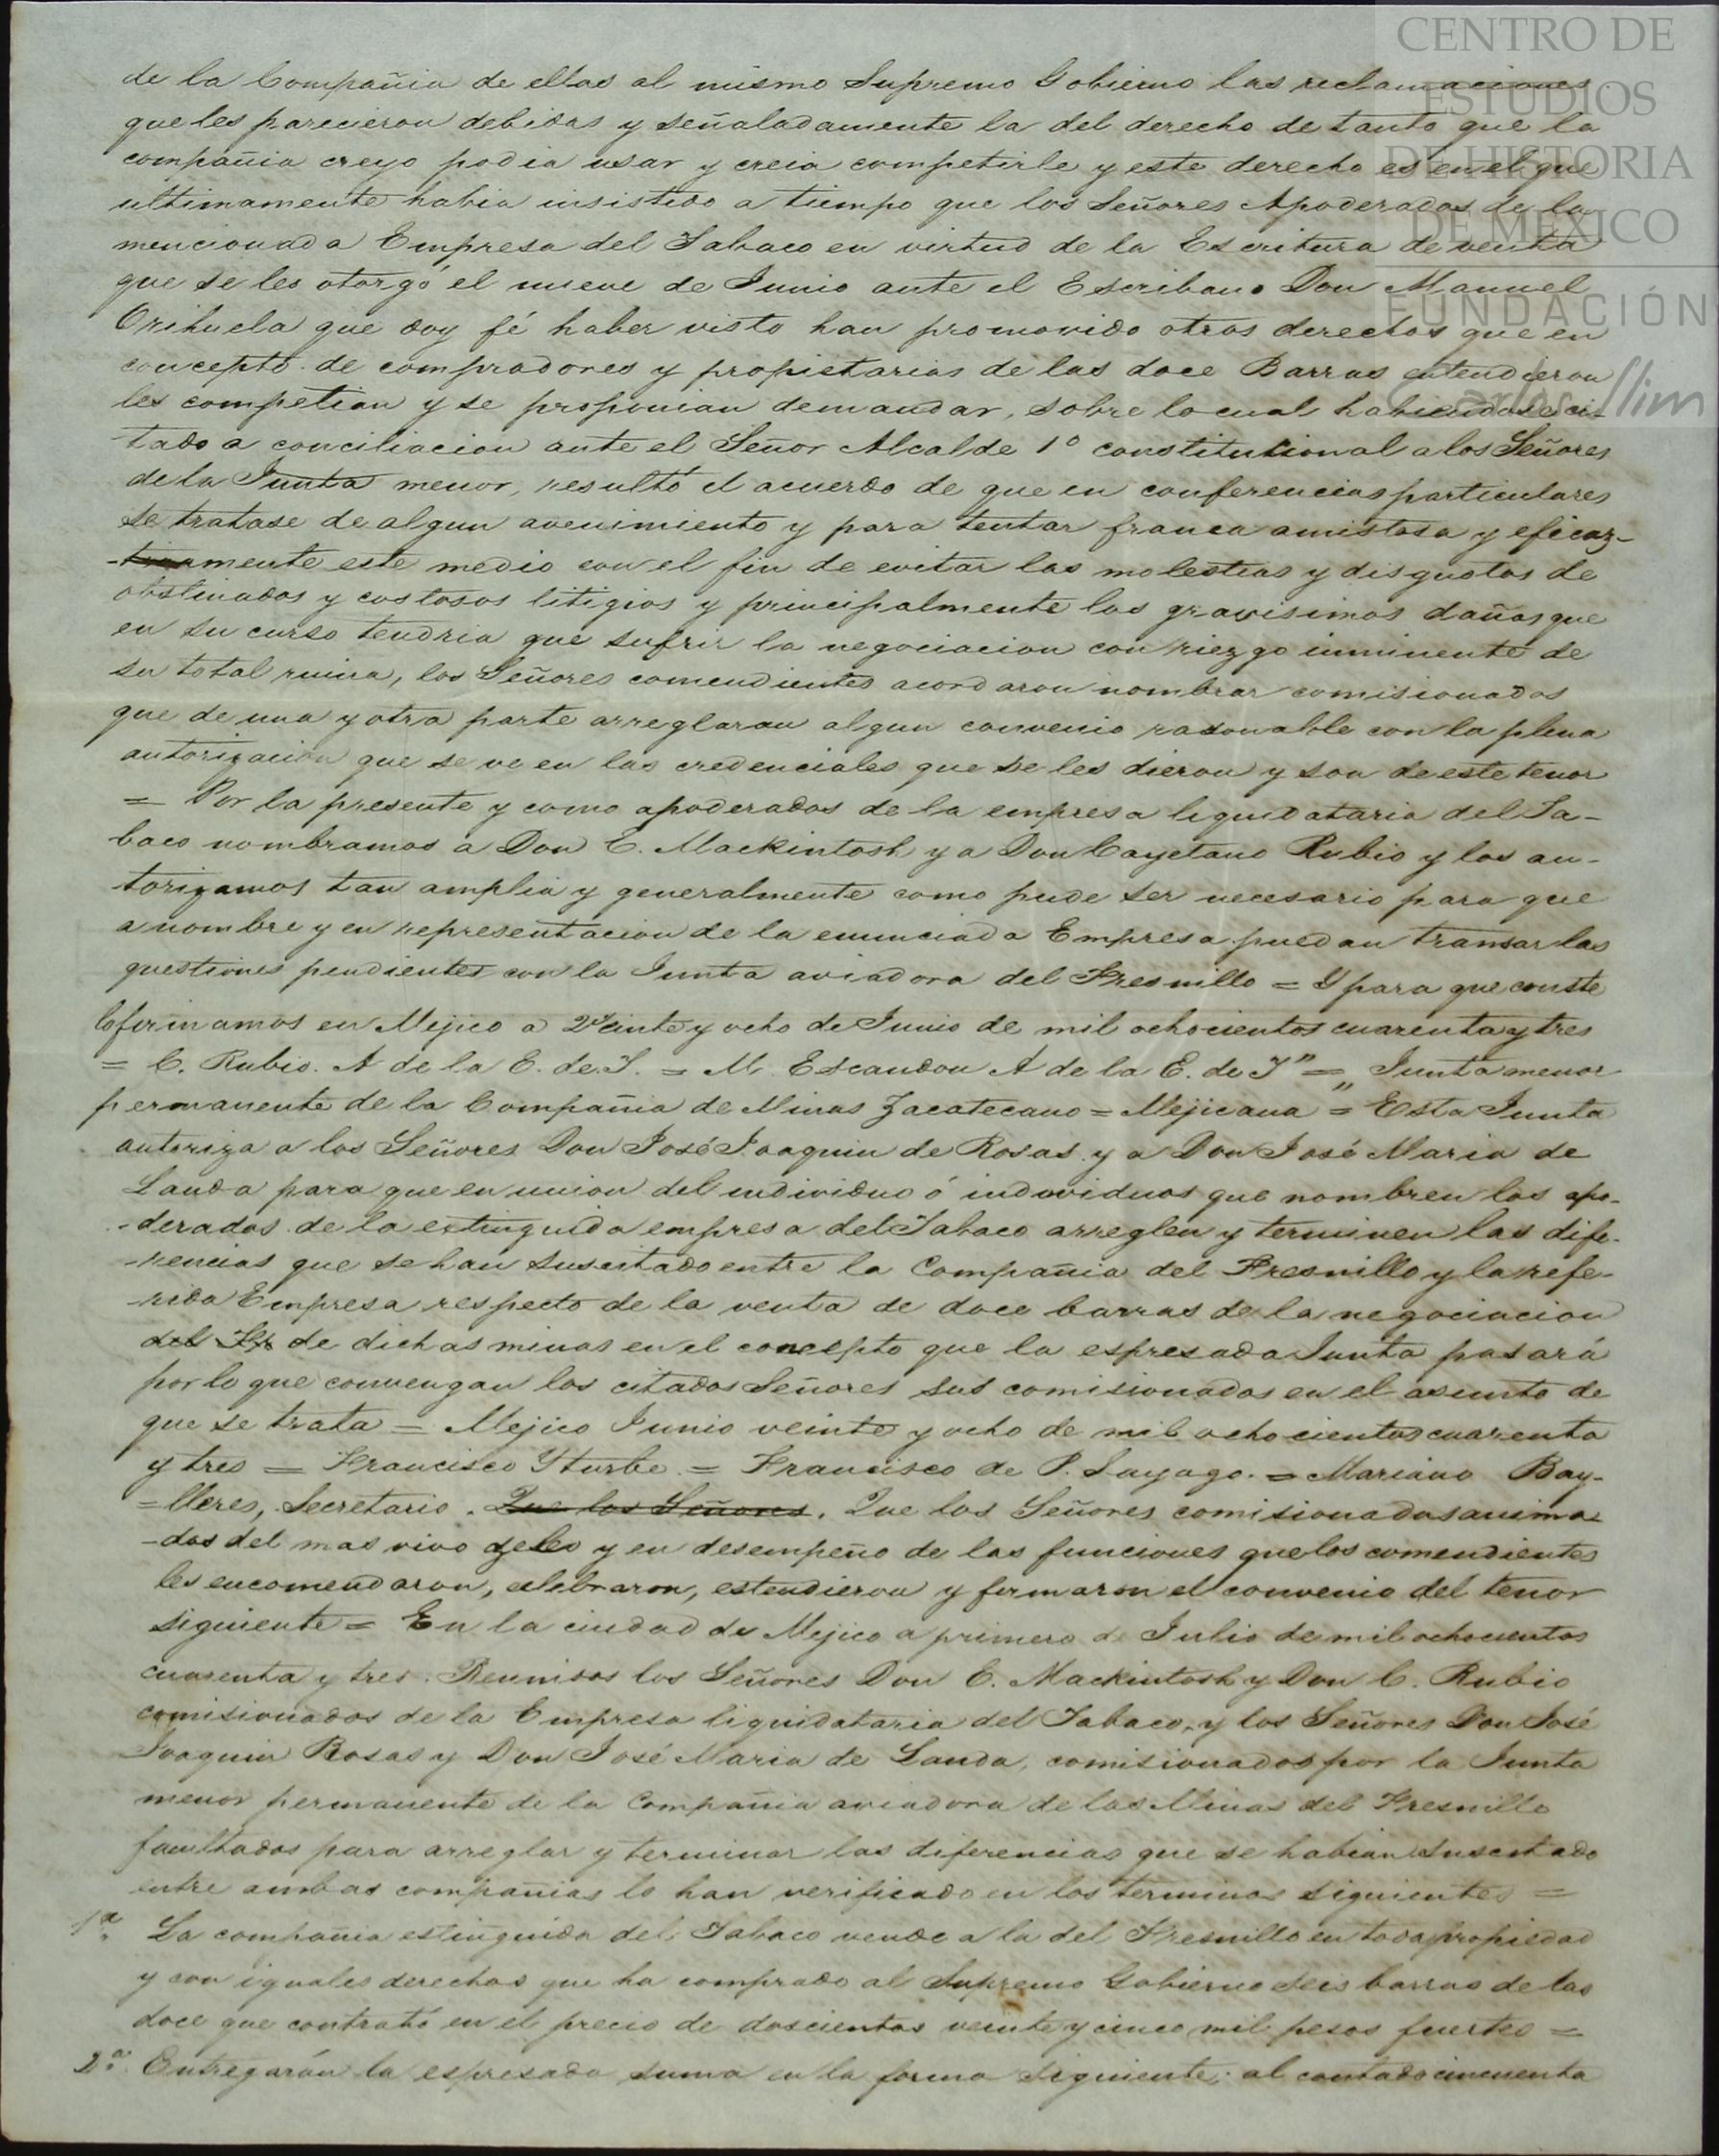 CENTRO DE
ESTUDIOS
DE HISTORIA
DE MÉXICO
FUNDACIÓN
Carlos Slim
de la Compañia de ellas al mismo Supremo Gobierno las reclamaciones
que les parecieron debidas y señaladamente la del derecho de tanto que la
compañia creyo podia usar y creia competirle y este derecho es en el que
ultimamente habia insistido a tiempo que los Señores Apoderados de la
mencionada Empresa del Tabaco en virtud de la Escritura de venta
que se les otorgó el nueve de Junio ante el Escribano Don Manuel
Orihuela que doy fé haber visto han promovido otros derechos que en
concepto de compradores y propietarios de las doce Barras entendieron
les competian y se proponian demandar, sobre lo cual habiendose ci-
tado a conciliacion ante el Señor Alcalde 1º constitucional a los Señores
de la Junta menor, resultó el acuerdo de que en conferencias particulares
se tratase de algun avenimiento y para tentar franca amistosa y eficaz-
mente este medio con el fin de evitar las molestias y disgustos de
obstinados y costosos litigios y principalmente los gravisimos daños que
en su curso tendria que sufrir la negociacion con riezgo inminente de
su total ruina, los Señores comendientes acordaron nombrar comisionados
que de una y otra parte arreglaran algun convenio rasonable con la plena
autorizacion que se ve en las credenciales que se les dieron y son de este tenor
= Por la presente y como apoderados de la empresa liquidataria del Ta-
baco nombramos a Don E. Mackintosh y a Don Cayetano Rubio y los au-
torizamos tan amplia y generalmente como pude ser necesario para que
a nombre y en representacion de la enunciada Empresa puedan transar las
questiones pendientes con la Junta aviadora del Fresnillo = Y para que conste
lo firmamos en Mejico a Veinte y ocho de Junio de mil ochocientos cuarenta y tres
= C. Rubio. A de la E. de T. = M. Escandon A de la E. de T" = „ Junta menor
permanente de la Compañia de Minas Zacatecano = Mejicana = Esta Junta
autoriza a los Señores Don José Joaquin de Rosas y a Don José Maria de
Landa para que en union del individuo ó individuos que nombren los apo-
-derados de la extinguida empresa del Tabaco arreglen y terminen las dife-
-rencias que se han suscitado entre la Compañia del Fresnillo y la refe-
-rida Empresa respecto de la venta de doce barras de la negociacion
del Fr de dichas minas en el concepto que la espresada Junta pasará
por lo que convengan los citados Señores sus comisionados en el asunto de
que se trata = Mejico Junio veinte y ocho de mil ochocientos cuarenta
y tres = Francisco Yturbe = Francisco de P. Sayago. = Mariano Bay-
=lleres, Secretario. Que los Señores. Que los Señores comisionados anima-
-dos del mas vivo zelo y en desempeño de las funciones que los comendientes
les encomendaron, celebraron, estendieron y firmaron el convenio del tenor
siguiente = En la ciudad de Mejico a primero de Julio de mil ochocientos
cuarenta y tres. Reunidos los Señores Don E. Mackintosh y Don C. Rubio
comisionados de la Empresa liquidataria del Tabaco, y los Señores Don José
Joaquin Rosas y Don José Maria de Landa, comisionados por la Junta
menor permanente de la Compañia aviadora de las Minas del Fresnillo
facultados para arreglar y terminar las diferencias que se habian suscitado
entre ambas compañias lo han verificado en los terminos siguientes =
1ª. La compañia estinguida del Tabaco vende a la del Fresnillo en toda propiedad
y con iguales derechos que ha comprado al Supremo Gobierno seis barras de las
doce que contrató en el precio de doscientos veinte y cinco mil pesos fuertes =
2ª. Entregarán la espresada suma en la forma siguiente: al contado cincuenta